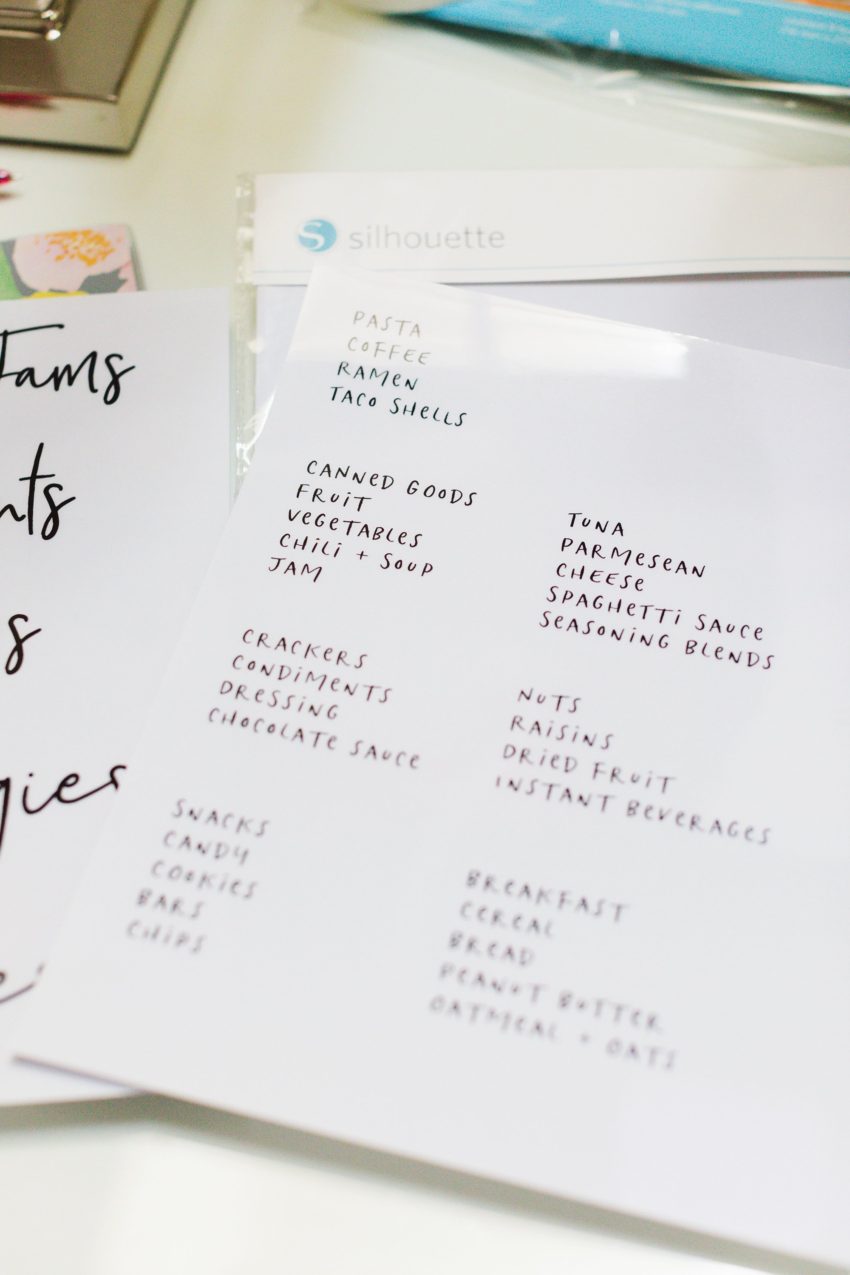 silhouette
Jams
PASTA
COFFEE
RAMEN
TACO SHELLS
CANNED GOODS
FRUIT
VEGETABLES
CHILI + SOUP
JAM
CRACKERS
CONDIMENTS
DRESSING
CHOCOLATE SAUCE
SNACKS
CANDY
COOKIES
BARS
CHIPS
TUNA
PARMESEAN
CHEESE
SPAGHETTI SAUCE
SEASONING BLENDS
NUTS
RAISINS
DRIED FRUIT
INSTANT BEVERAGES
BREAKFAST
CEREAL
BREAD
PEANUT BUTTER
OATMEAL + OATS